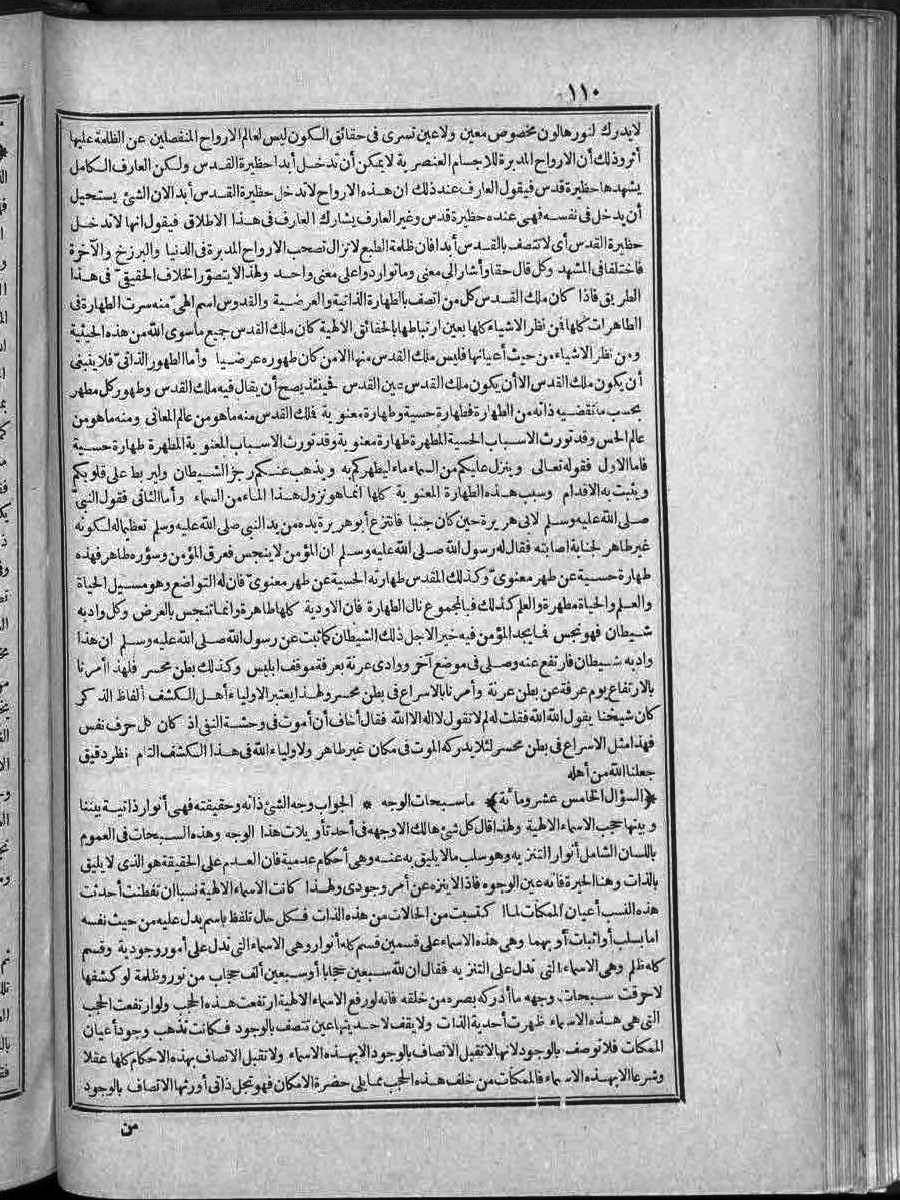 ١١٠
لايدرك لنورها لون مخصوص معين ولاعين تسرى فى حقائق الكون ليس لعالم الارواح المنفصلين عن الظلمة عليها
أثر وذلك أن الارواح المدبرة للاجسام العنصرية لا يمكن أن تدخل أبدا حظيرة القدس ولكن العارف الكامل
يشهدها حظيرة قدس فيقول العارف عند ذلك ان هذه الارواح لا تدخل حظيرة القدس أبد الان الشئ يستحيل
أن يدخل فى نفسه فهى عنده حظيرة قدس وغير العارف يشارك العارف فى هذا الاطلاق فيقول انها لا تدخل
حظيرة القدس أى لا تتصف بالقدس أبدا فان ظلمة الطبع لا تزال تصحب الارواح المدبرة فى الدنيا والبرزخ والآخرة
فاختلفا فى المشهد وكل قال حقا وأشار الى معنى وما تواردوا على معنى واحد ولهذا لا يتصوّر الخلاف الحقيقىّ فى هذا
الطريق فاذا كان ملك القدس كل من اتصف بالطهارة الذاتية والعرضية والقدوس اسم الهىّ منه سرت الطهارة فى
الطاهرات كلها فمن نظر الاشياء كلها بعين ارتباطها بالحقائق الالهية كان ملك القدس جميع ما سوى الله من هذه الحيثية
ومن نظر الاشياء من حيث أعيانها فليس ملك القدس منها الا من كان طهوره عرضيا وأما الطهور الذاتىّ فلا ينبغى
أن يكون ملك القدس الا أن يكون ملك القدس عين القدس فحينئذ يصح أن يقال فيه ملك القدس وطهور كل مطهر
بحسب ما تقتضيه ذاته من الطهارة فطهارة حسية وطهارة معنوية فملك القدس منه ما هو من عالم المعانى ومنه ما هو من
عالم الحس وقد تورث الاسباب الحسية المطهرة طهارة معنوية وقد تورث الاسباب المعنوية المطهرة طهارة حسية
فاما الاول فقوله تعالى وينزل عليكم من السماء ماء ليطهركم به ويذهب عنكم رجز الشيطان وليربط على قلوبكم
ويثبت به الاقدام وسبب هذه الطهارة المعنوية كلها انما هو نزول هذا الماء من السماء وأما الثانى فقول النبىّ
صلى الله عليه وسلم لابى هريرة حين كان جنبا فانتزع أبو هريرة يده من يد النبى صلى الله عليه وسلم تعظيما له لكونه
غير طاهر لجنابة اصابته فقال له رسول الله صلى الله عليه وسلم ان المؤمن لا ينجس فعرق المؤمن وسؤره طاهر فهذه
طهارة حسية عن طهر معنوىّ وكذلك المقدس طهارته الحسية عن طهر معنوىّ فان له التواضع وهو مسيل الحياة
والعلم والحياة مطهرة والعلم كذلك فبالمجموع نال الطهارة فان الاودية كلها طاهرة وانما تنجس بالعرض وكل واد به
شيطان فهو نجس فما يجد المؤمن فيه خيرا لاجل ذلك الشيطان كما ثبت عن رسول الله صلى الله عليه وسلم ان هذا
واد به شيطان فارتفع عنه وصلى فى موضع آخر ووادى عرنة بعرفة موقف ابليس وكذلك بطن محسر فلهذا أمرنا
بالارتفاع يوم عرفة عن بطن عرنة وأمرنا بالاسراع فى بطن محسر ولهذا يعتبر الاولياء أهل الكشف ألفاظ الذكر
كان شيخنا يقول الله الله فقلت له لم لا تقول لا اله الا الله فقال أخاف أن أموت فى وحشة النفى اذ كان كل حرف نفس
فهذا مثل الاسراع فى بطن محسر لئلا يدركه الموت فى مكان غير طاهر ولاولياء الله فى هذا الكشف التام نظر دقيق
جعلنا الله من أهله
﴿السؤال الخامس عشر ومائة﴾ ما سبحات الوجه * الجواب وجه الشئ ذاته وحقيقته فهى أنوار ذاتية بيننا
وبينها حجب الاسماء الالهية ولهذا قال كل شئ هالك الا وجهه فى أحد تأويلات هذا الوجه وهذه السبحات فى العموم
باللسان الشامل أنوار التنزيه وهو سلب ما لا يليق به عنه وهى أحكام عدمية فان العدم على الحقيقة هو الذى لا يليق
بالذات وهنا الحيرة فانه عين الوجوه فاذا لا ينزه عن أمر وجودى ولهذا كانت الاسماء الالهية نسبا ان تفطنت أحدثت
هذه النسب أعيان الممكنات لما كتسبت من الحالات من هذه الذات فكل حال تلفظ باسم يدل عليه من حيث نفسه
اما بسلب أو اثبات أو بهما وهى هذه الاسماء على قسمين قسم كله أنوار وهى الاسماء التى تدل على أمور وجودية وقسم
كله ظلم وهى الاسماء التى تدل على التنزيه فقال ان لله سبعين حجابا أو سبعين ألف حجاب من نور وظلمة لو كشفها
لاحرقت سبحات وجهه ما أدركه بصره من خلقه فانه لو رفع الاسماء الالهية ارتفعت هذه الحجب ولو ارتفعت الحجب
التى هى هذه الاسماء ظهرت أحدية الذات ولا يقف لاحديتها عين تتصف بالوجود فكانت تذهب وجود أعيان
الممكنات فلا توصف بالوجود لانها لا تقبل الاتصاف بالوجود الا بهذه الاسماء ولا تقبل الاتصاف بهذه الاحكام كلها عقلا
وشرعا الا بهذه الاسماء فالممكنات من خلف هذه الحجب مما يلى حضرة الامكان فهو تجل ذاتى أورثها الاتصاف بالوجود
من